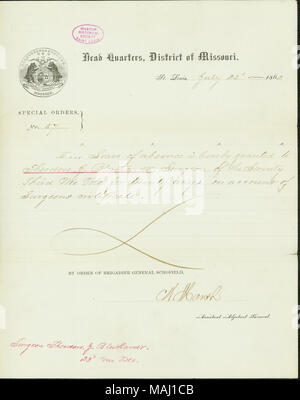 MISSOURI HISTORICAL SOCIETY
Head Quarters, District of Missouri.
St. Louis July 22d 186
SPECIAL ORDERS,
No. 27
Leave of absence is hereby granted to
Theodore J. Surgeon of the Twenty
Third Mo Vols for twenty days on account of
Surgeons certificate.
BY ORDER OF BRIGADIER GENERAL SCHOFIELD,
Assistant Adjutant General.
Surgeon Theodore J.
23d Mo Vols.
alamy
Image ID: MAJ1CB
www.alamy.com